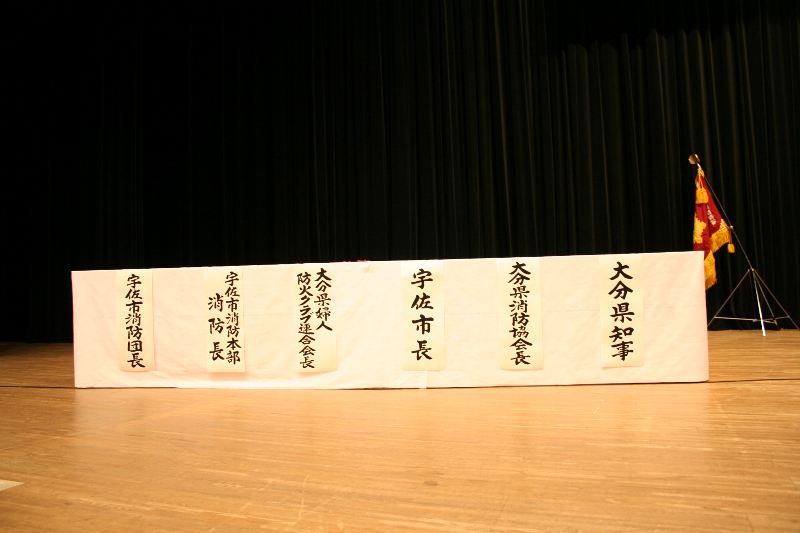 大分県知事
大分県消防協会長
宇佐市長
大分県婦人
防火クラブ連合会長
宇佐市消防本部
消防長
宇佐市消防団長